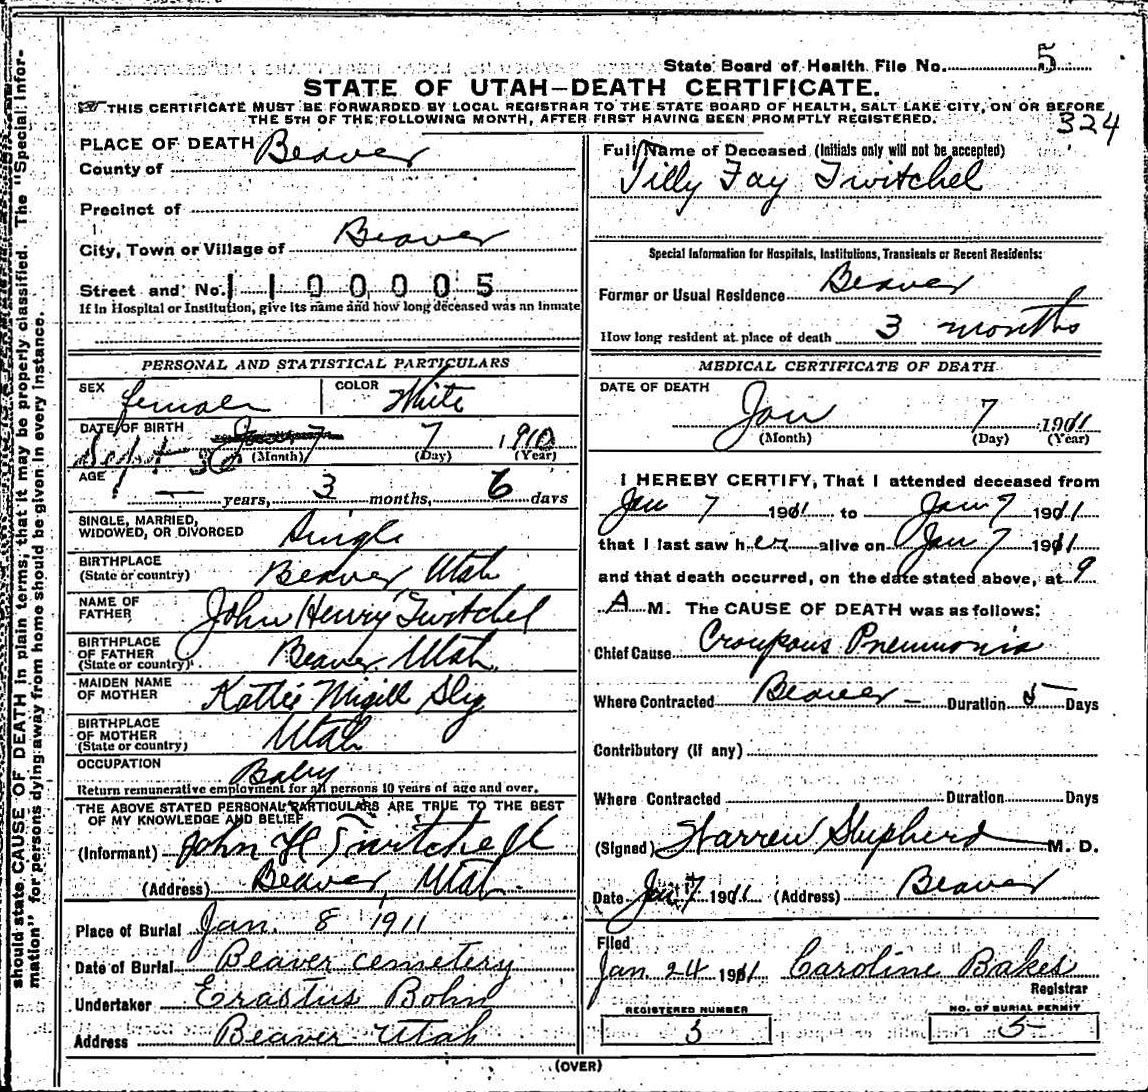 should state CAUSE OF DEATH in plain terms, that it may be properly classified. The "Special Infor-
mation" for persons dying away from home should be given in every instance.
State Board of Health File No. 5
STATE OF UTAH—DEATH CERTIFICATE.
THIS CERTIFICATE MUST BE FORWARDED BY LOCAL REGISTRAR TO THE STATE BOARD OF HEALTH, SALT LAKE CITY, ON OR BEFORE
THE 5TH OF THE FOLLOWING MONTH, AFTER FIRST HAVING BEEN PROMPTLY REGISTERED.
324
PLACE OF DEATH
County of Beaver
Precinct of
City, Town or Village of Beaver
Street and No. 1100005
If in Hospital or Institution, give its name and how long deceased was an inmate
PERSONAL AND STATISTICAL PARTICULARS
SEX female COLOR White
DATE OF BIRTH Sept 30 7 7 1910
(Month) (Day) (Year)
AGE — years, 3 months, 6 days
SINGLE, MARRIED,
WIDOWED, OR DIVORCED Single
BIRTHPLACE
(State or country) Beaver, Utah
NAME OF
FATHER John Henry Twitchel
BIRTHPLACE
OF FATHER
(State or country) Beaver, Utah
MAIDEN NAME
OF MOTHER Kattie
BIRTHPLACE
OF MOTHER
(State or country) Utah
OCCUPATION Baby
Return remunerative employment for all persons 10 years of age and over.
THE ABOVE STATED PERSONAL PARTICULARS ARE TRUE TO THE BEST
OF MY KNOWLEDGE AND BELIEF
(Informant) John H Twitchell
(Address) Beaver, Utah.
Place of Burial Jan. 8 1911
Date of Burial Beaver cemetery
Undertaker Erastus Bohn
Address Beaver Utah
Full Name of Deceased (Initials only will not be accepted)
Tilly Fay Twitchel
Special Information for Hospitals, Institutions, Transients or Recent Residents:
Former or Usual Residence Beaver
How long resident at place of death 3 months
MEDICAL CERTIFICATE OF DEATH
DATE OF DEATH
Jan 7 1911
(Month) (Day) (Year)
I HEREBY CERTIFY, That I attended deceased from
Jan 7 1911 to Jan 7 1911
that I last saw her alive on Jan 7 1911
and that death occurred, on the date stated above, at 9
A M. The CAUSE OF DEATH was as follows:
Chief Cause Croupous Pneumonia
Where Contracted Beaver — Duration 5 Days
Contributory (if any)
Where Contracted Duration Days
(Signed) Warren Shepherd M. D.
Date Jan 7 1911 (Address) Beaver
Filed
Jan 24 1911 Caroline Bakes
Registrar
REGISTERED NUMBER
5
NO. OF BURIAL PERMIT
5
(OVER)